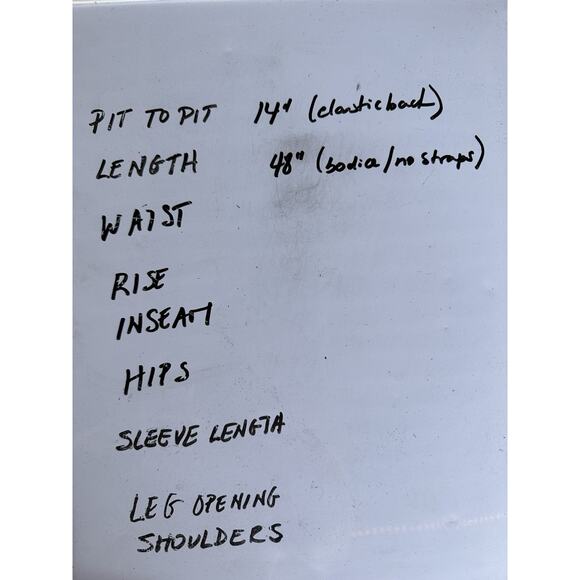 PIT TO PIT 14" (elastic back)
LENGTH 48" (bodice/no straps)
WAIST
RISE
INSEAM
HIPS
SLEEVE LENGTH
LEG OPENING
SHOULDERS